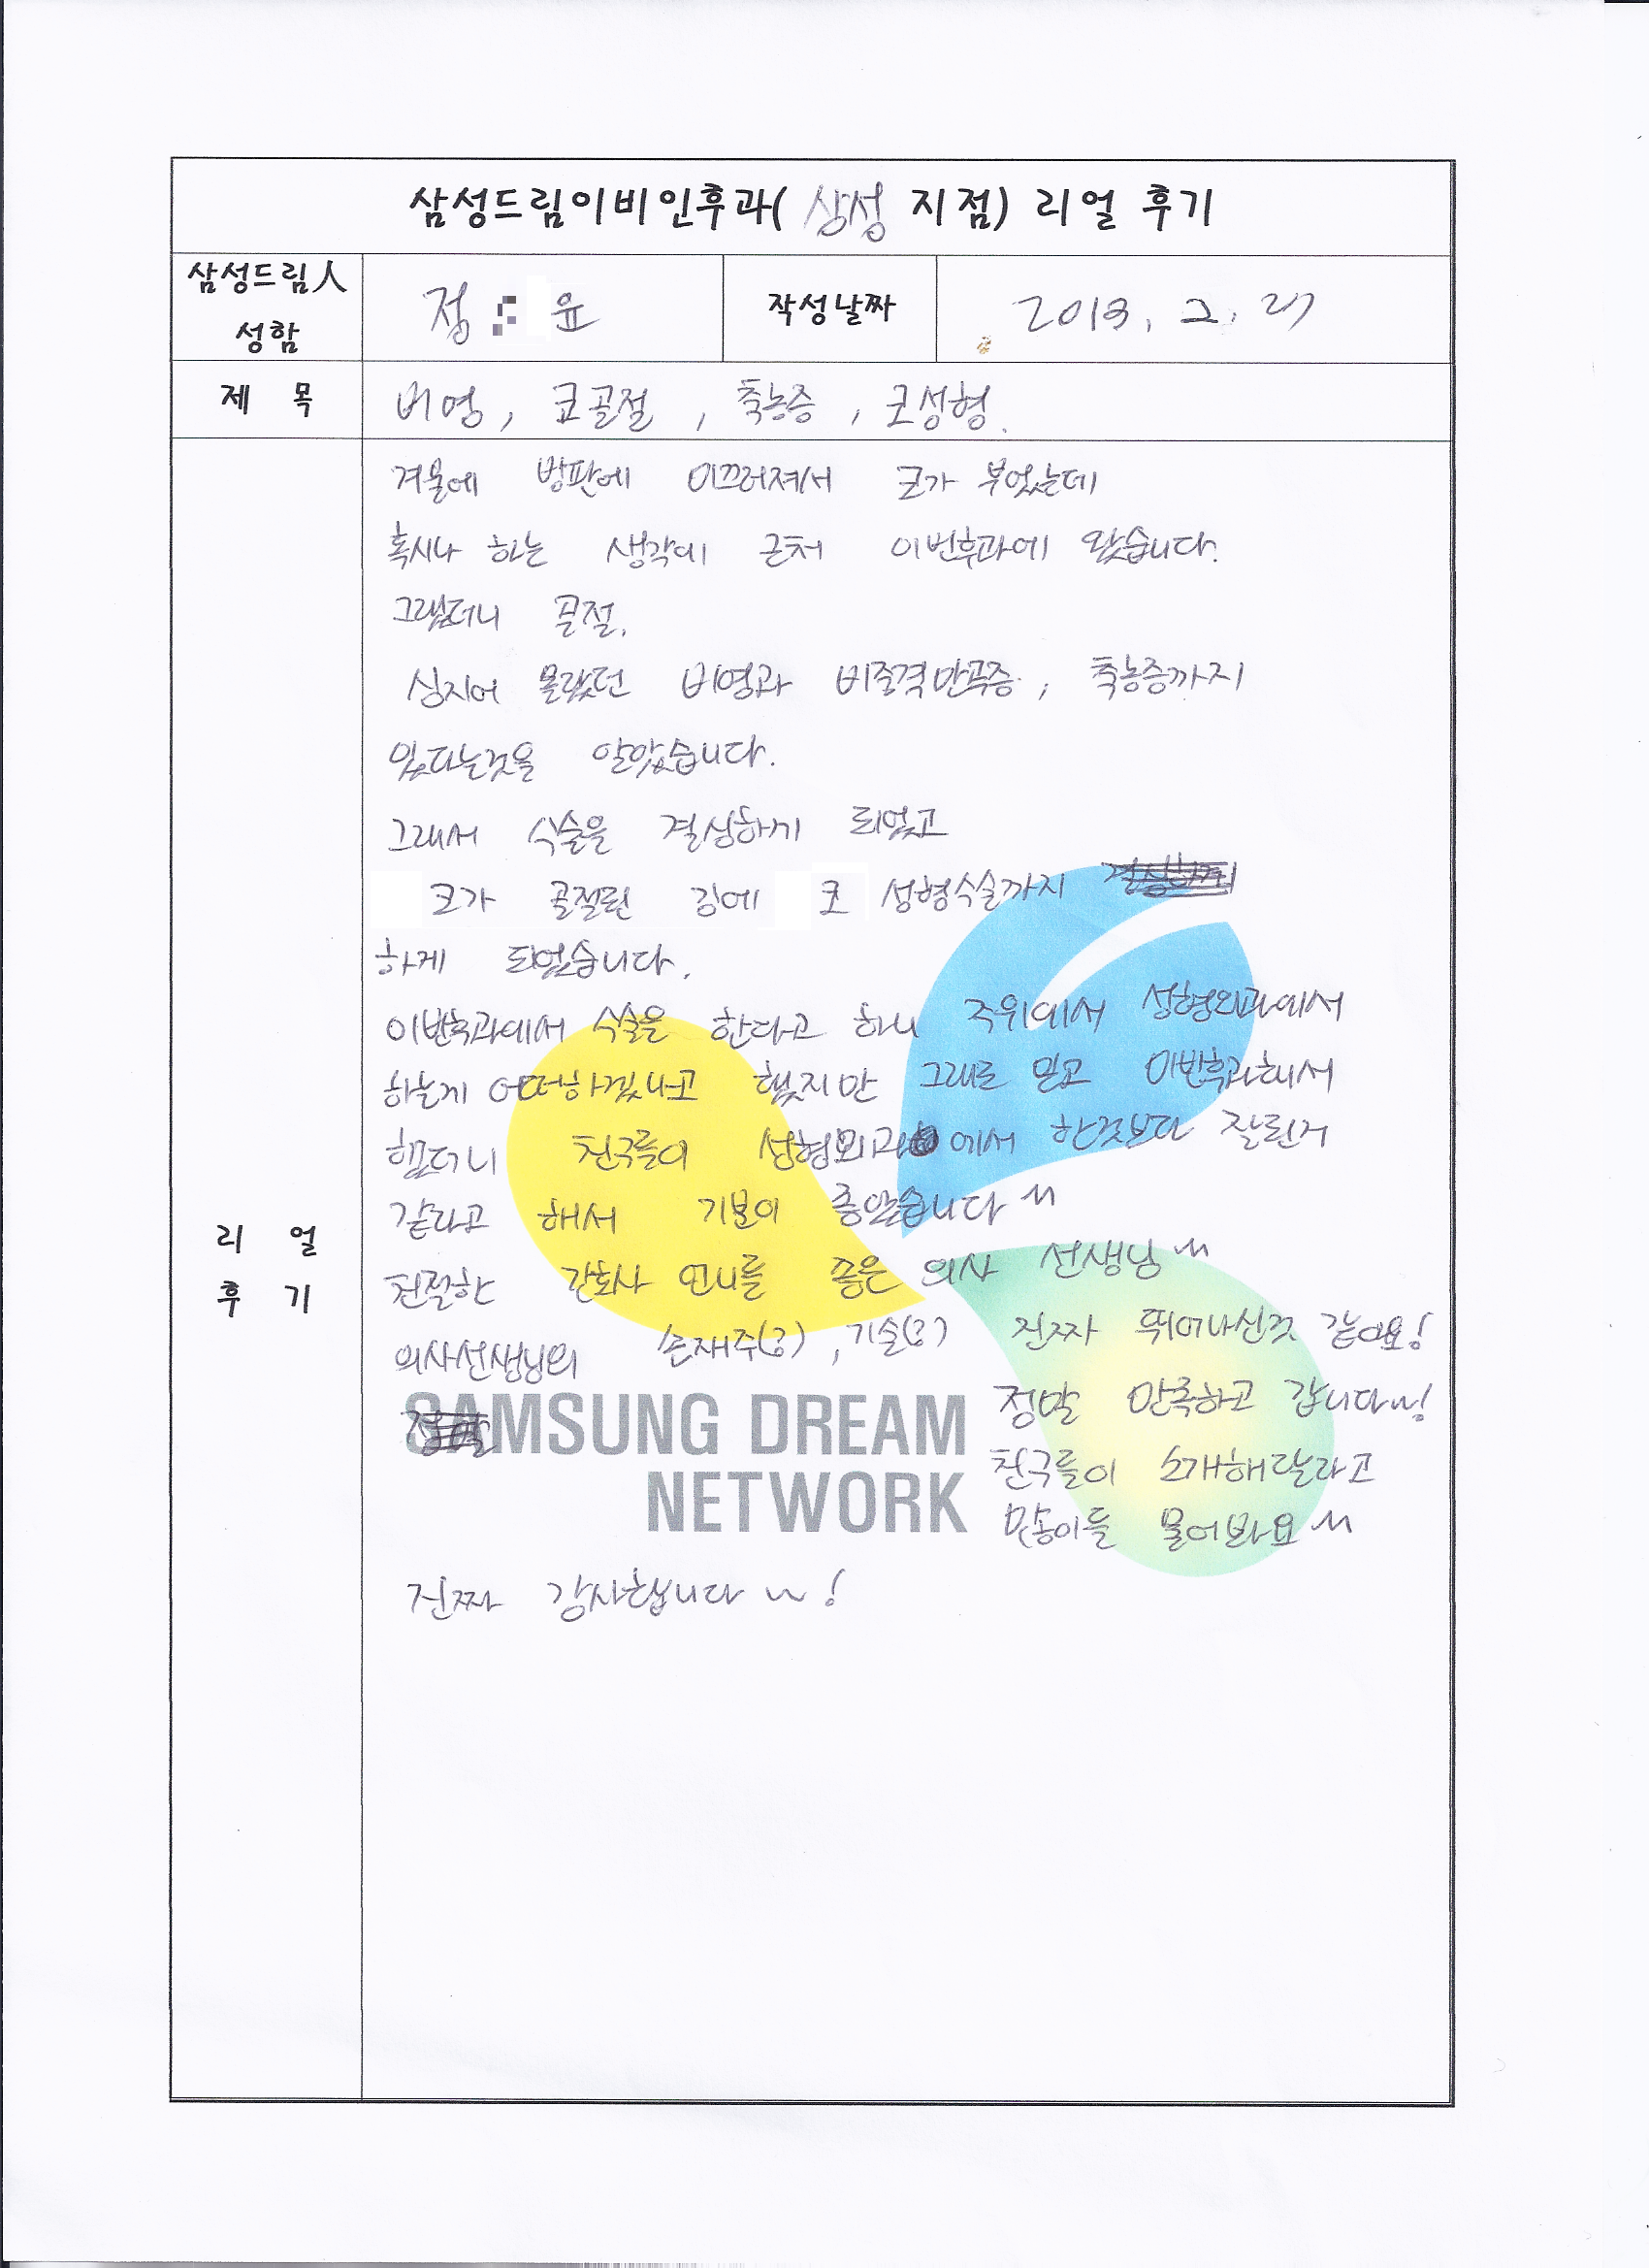 삼성드림이비인후과( 삼성 지점) 리얼 후기
삼성드림人 성함 정 윤 작성날짜 2013. 2. 27
제 목 비염, 코골절, 축농증, 코성형.
겨울에 빙판에 미끄러져서 코가 부었는데
혹시나 하는 생각에 근처 이빈후과에 왔습니다.
그랬더니 골절.
심지어 몰랐던 비염과 비중격만곡증, 축농증까지
있다는것을 알았습니다.
그래서 수술을 결심하기 되었고
코가 골절된 김에 코 성형수술까지
하게 되었습니다.
이빈후과에서 수술을 한다고 하니 주위에서 성형외과에서
하는게 어떠하겠냐고 했지만 그대로 믿고 이빈후과해서
했더니 친구들이 성형외과에서 한것보다 잘된거
같다고 해서 기분이 좋았습니다 ^^
친절한 간호사 언니들 좋은 의사 선생님 ^^
의사선생님의 손재주(?), 기술(?) 진짜 뛰어나신것 같아요!
정말 만족하고 갑니다~!
친구들이 소개해달라고
많이들 물어봐요 ^^
진짜 감사합니다 ~!
리 얼
후 기
SAMSUNG DREAM
NETWORK